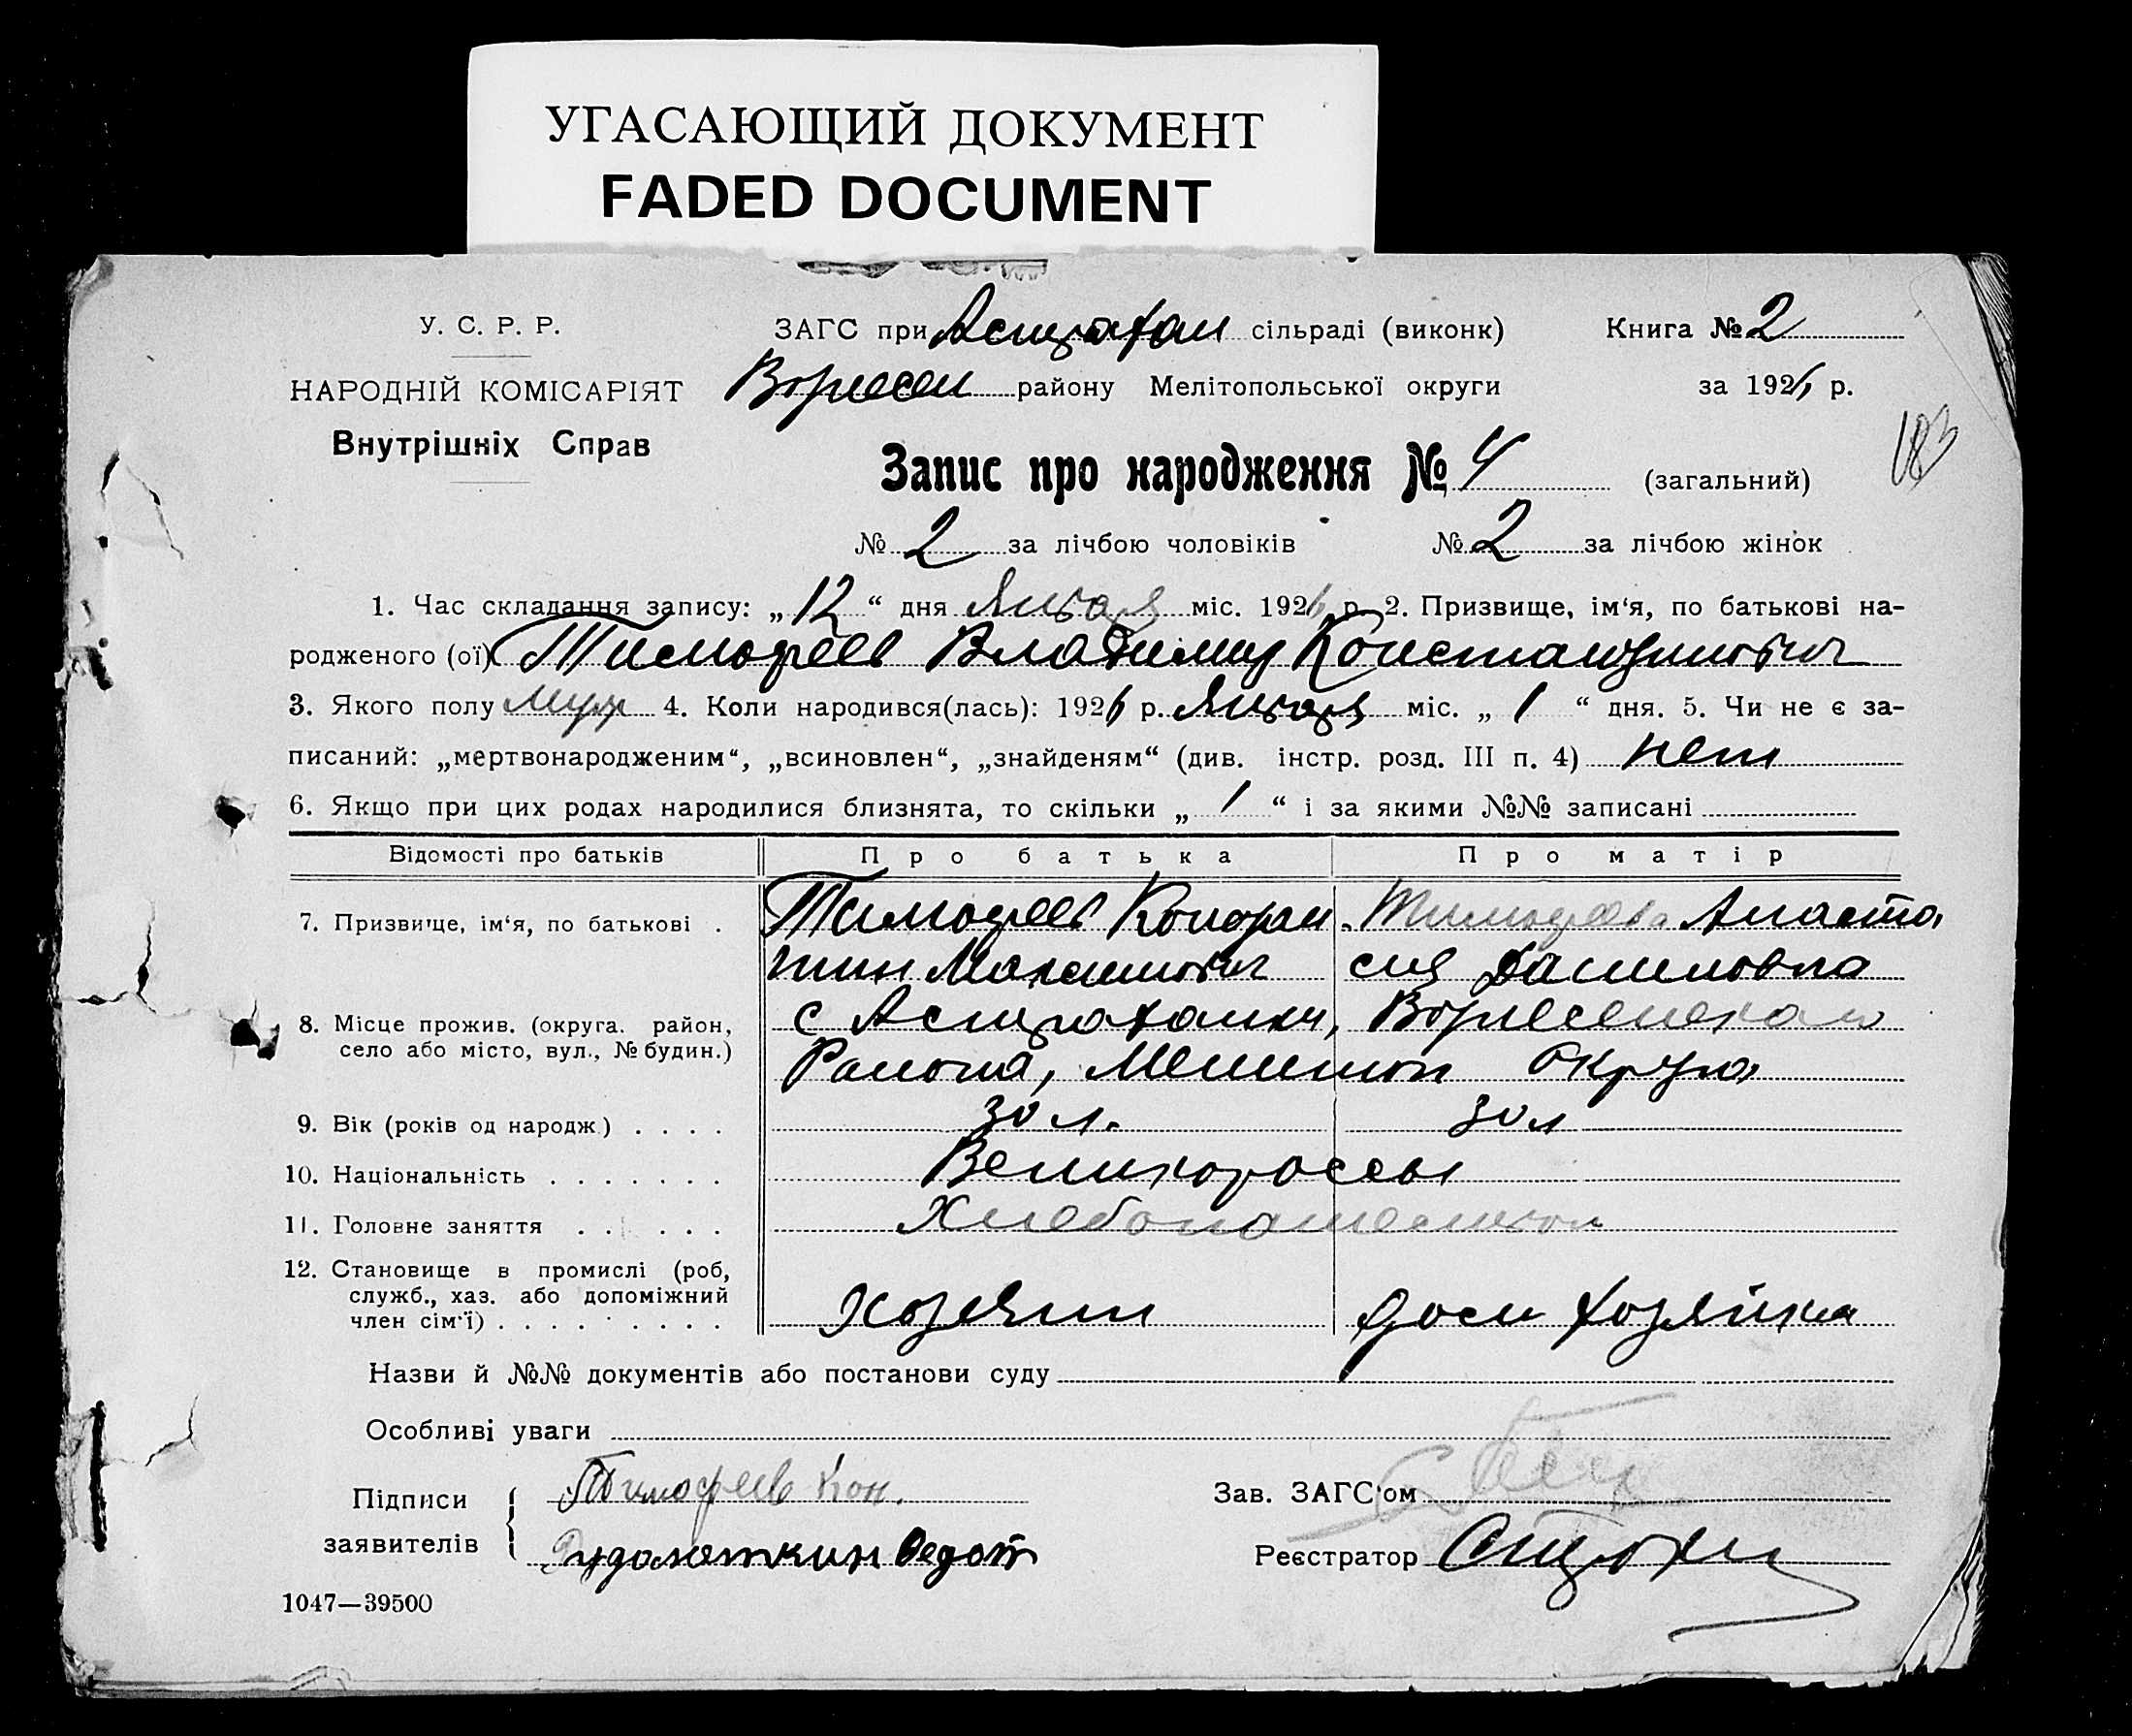 УГАСАЮЩИЙ ДОКУМЕНТ
FADED DOCUMENT
У. С. Р. Р.
НАРОДНІЙ КОМІСАРІЯТ
Внутрішніх Справ
ЗАГС при Астрахан сільраді (виконк) Книга № 2
Вознесен району Мелітопольської округи за 1926 р.
183
Запис про народження № 4 (загальний)
№ 2 за лічбою чоловіків № 2 за лічбою жінок
1. Час складання запису: „12“ дня Января міс. 1926 р. 2. Призвище, ім‘я, по батькові на-
родженого (ої) Тимофеев Владимир Константинович
3. Якого полу муж 4. Коли народився(лась): 1926 р. Января міс. „1“ дня. 5. Чи не є за-
писаний: „мертвонародженим“, „всиновлен“, „знайденям“ (див. інстр. розд. III п. 4) нет
6. Якщо при цих родах народилися близнята, то скільки „1“ і за якими №№ записані
Відомості про батьків Про батька Про матір
7. Призвище, ім‘я, по батькові . Тимофеев Констан Тимофеева Анаста
тин Максимович сия Даниловна
8. Місце прожив. (округа. район, с Астраханки, Вознесенскаго
село або місто, вул., № будин.) Района, Мелитоп Округа
9. Вік (років од народж.) . . . . 30 л. 30 л
10. Національність . . . . . . . Великороссы
11. Головне заняття . . . . . Хлебопашеством
12. Становище в промислі (роб,
служб., хаз. або допоміжний
член сім‘ї) . . . . . . . . . Хозяин дом хозяйка
Назви й №№ документів або постанови суду
Особливі уваги
Підписи Тимофеев Кон. Зав. ЗАГС‘ом
заявителів Рудометкин Федот Реєстратор
1047—39500